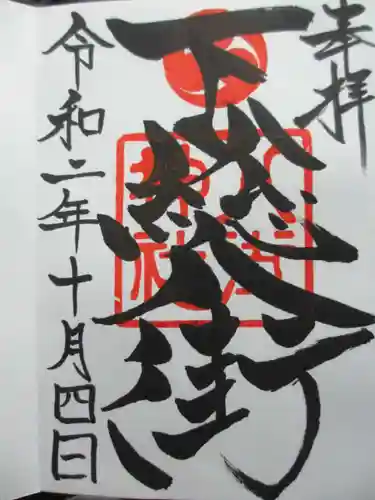 奉拝
下総八街
令和二年十月四日